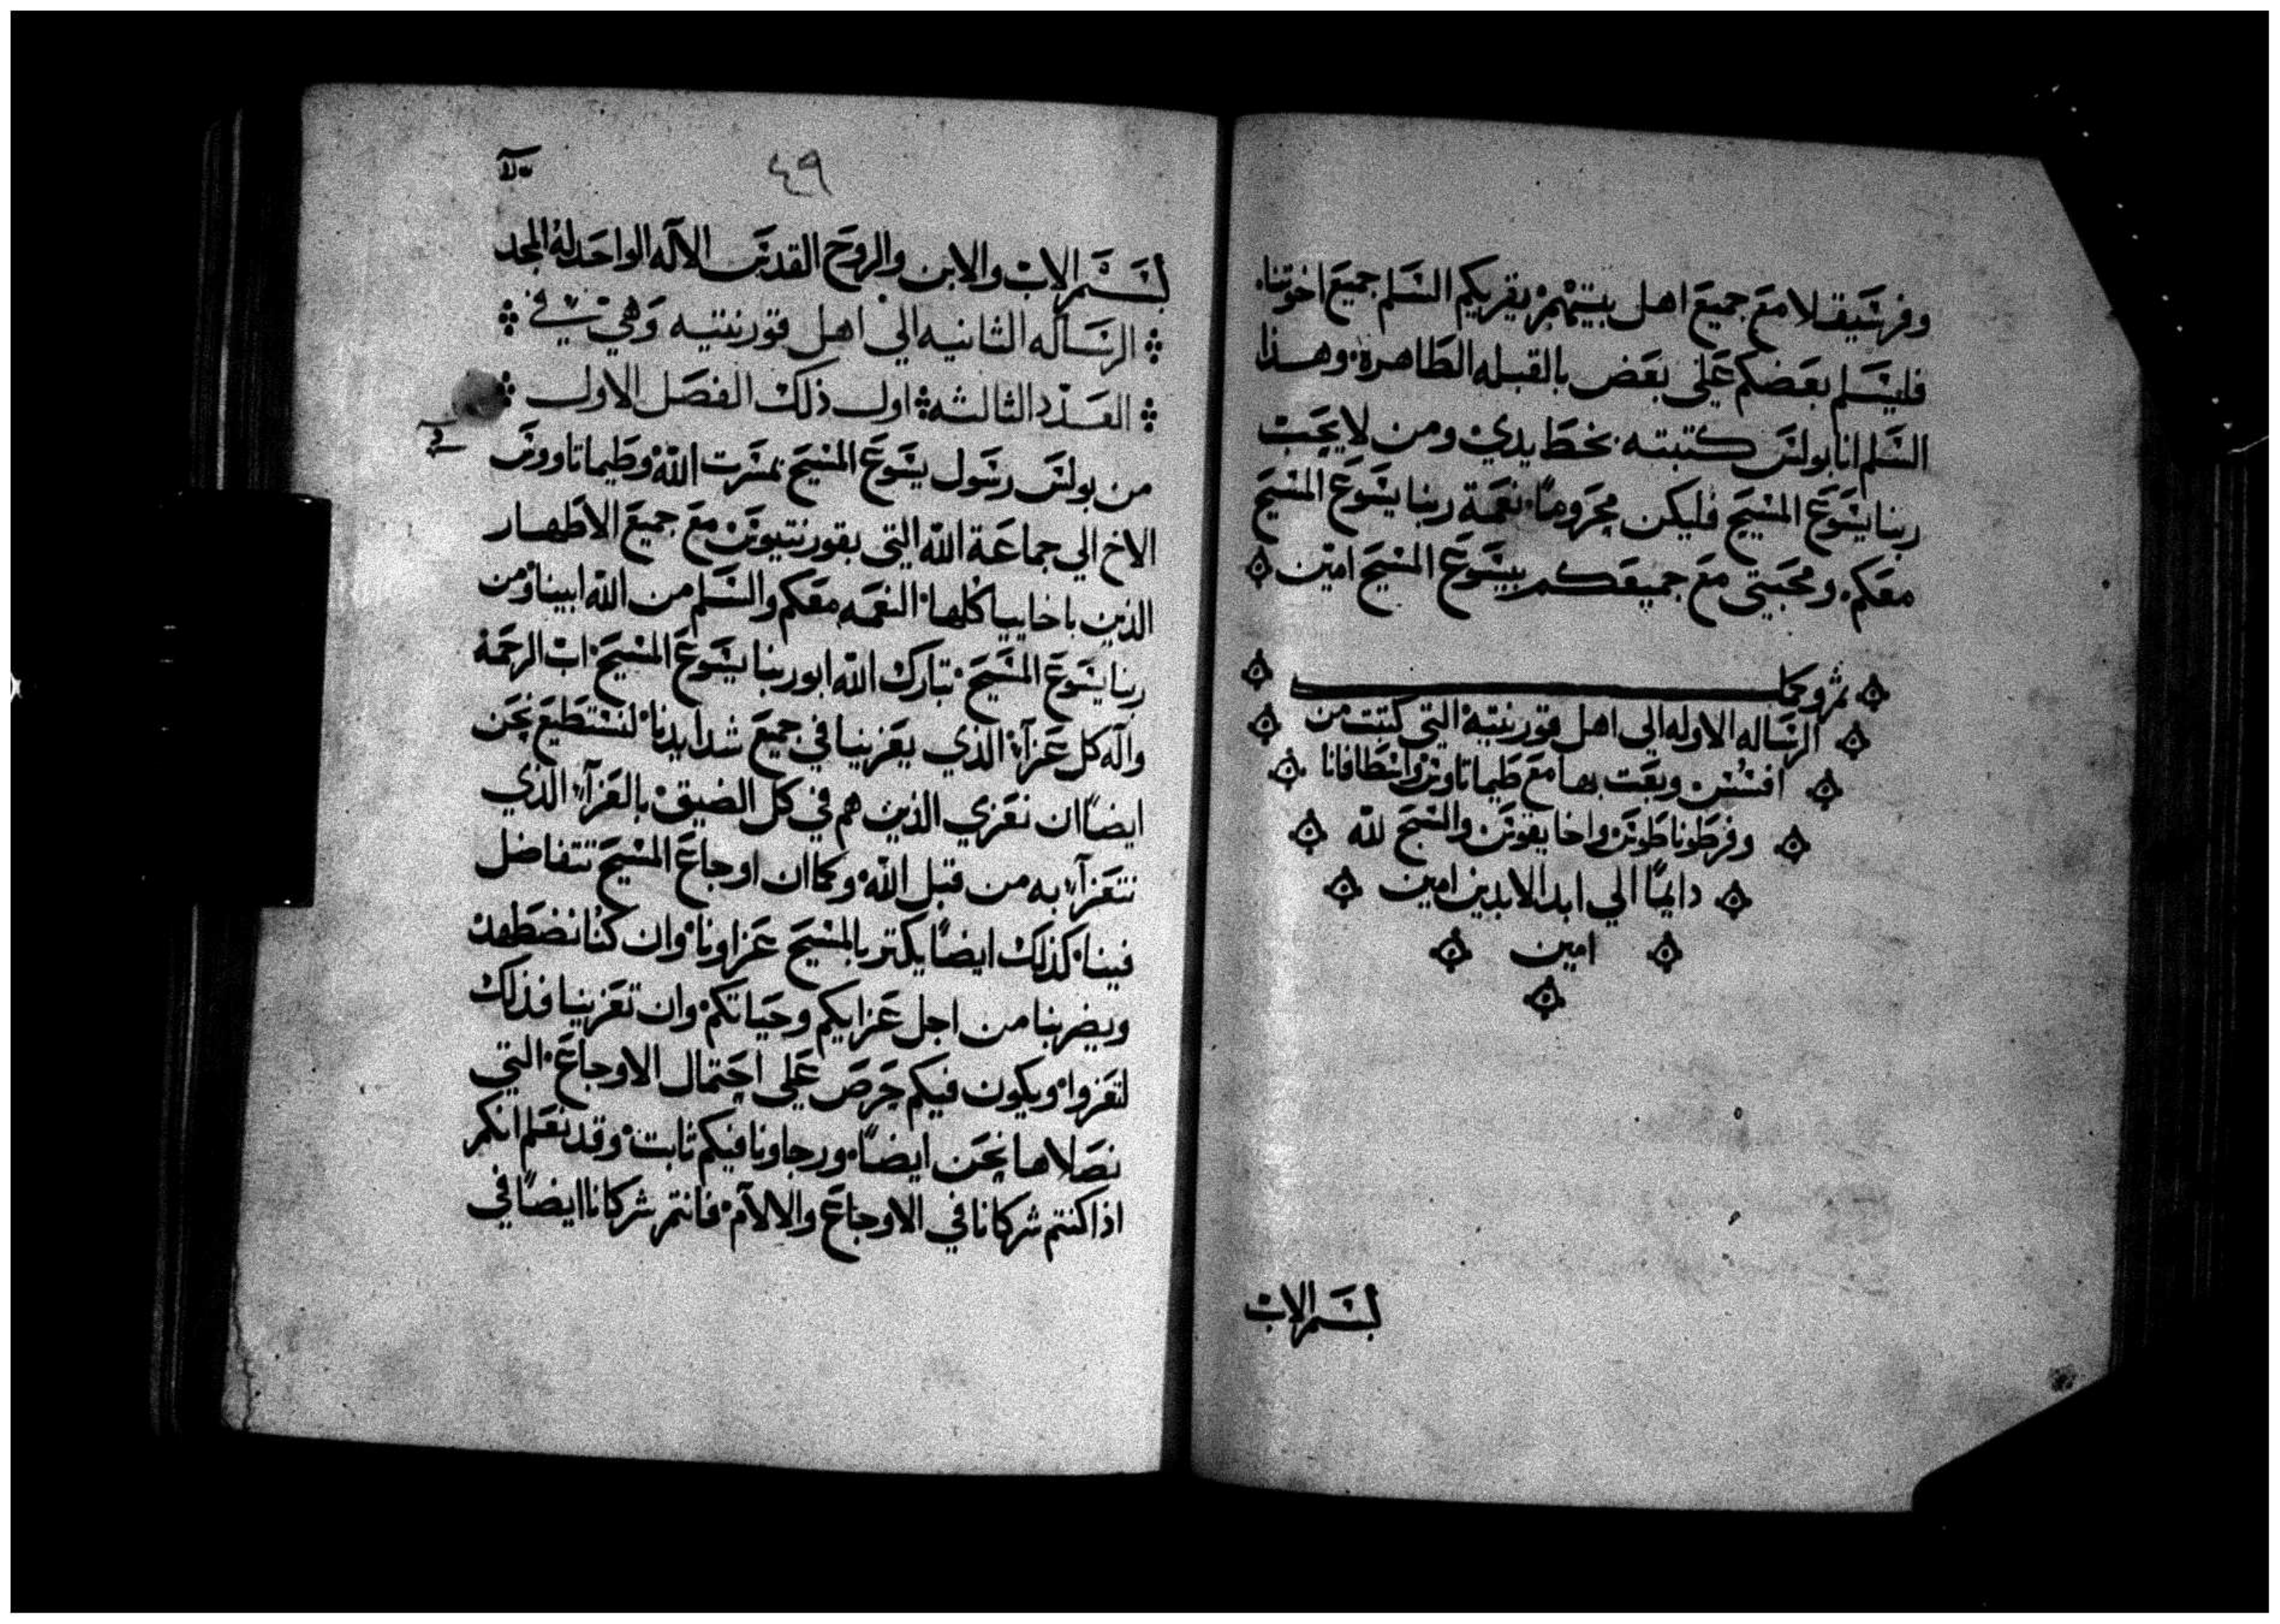 وفرسقلا مع جميع اهل بيتهم يقريكم السلم جميع اخوتنا.
فليسلم بعضكم علي بعض بالقبله الطاهرة وهذا
السلم انا بولس كتبته بخط يدي ومن لا يحب
ربنا يسوع المسيح فليكن محروماً نعمة ربنا يسوع المسيح
معكم. ومحبتي مع جميعكم بيسوع المسيح امين
ثم وكمل
الرساله الاوله الي اهل قورنتيه التي كتبت من
افسس وبعت بها مع طيماتاوس واسطافانا
وفرطوناطوس واخايقوس والسبح لله
دايماً الي ابد الابدين امين
امين
بسم الاب
٤٩
بسم الاب والابن والروح القدس الاله الواحد له المجد
الرساله الثانيه الي اهل قورنتيه وهي في
العدد الثالثه اول ذلك الفصل الاول
من بولس رسول يسوع المسيح بمسرت الله وطيماتاووس
الاخ الي جماعة الله التي بقورنتيوس مع جميع الاطهار
الذين باخاييا كلها النعمه معكم والسلم من الله ابينا ومن
ربنا يسوع المسيح تبارك الله ابو ربنا يسوع المسيح اب الرحمة
واله كل عزآء الذي يعزينا في جميع شدايدنا لنستطيع نحن
ايضاً ان نعزي الذين هم في كل الضيق بالعزآء الذي
نتعزآء به من قبل الله وكما ان اوجاع المسيح تتفاضل
فينا كذلك ايضاً يكتر بالمسيح عزاونا وان كنا نضطهد
ويضر بنا من اجل عزايكم وحياتكم وان تعزينا فذلك
لتعزوا ويكون فيكم حرص علي احتمال الاوجاع التي
نصلاها نحن ايضاً. ورجاونا فيكم ثابت وقد نعلم انكم
اذا كنتم شركانا في الاوجاع والالآم فانتم شركانا ايضاً في